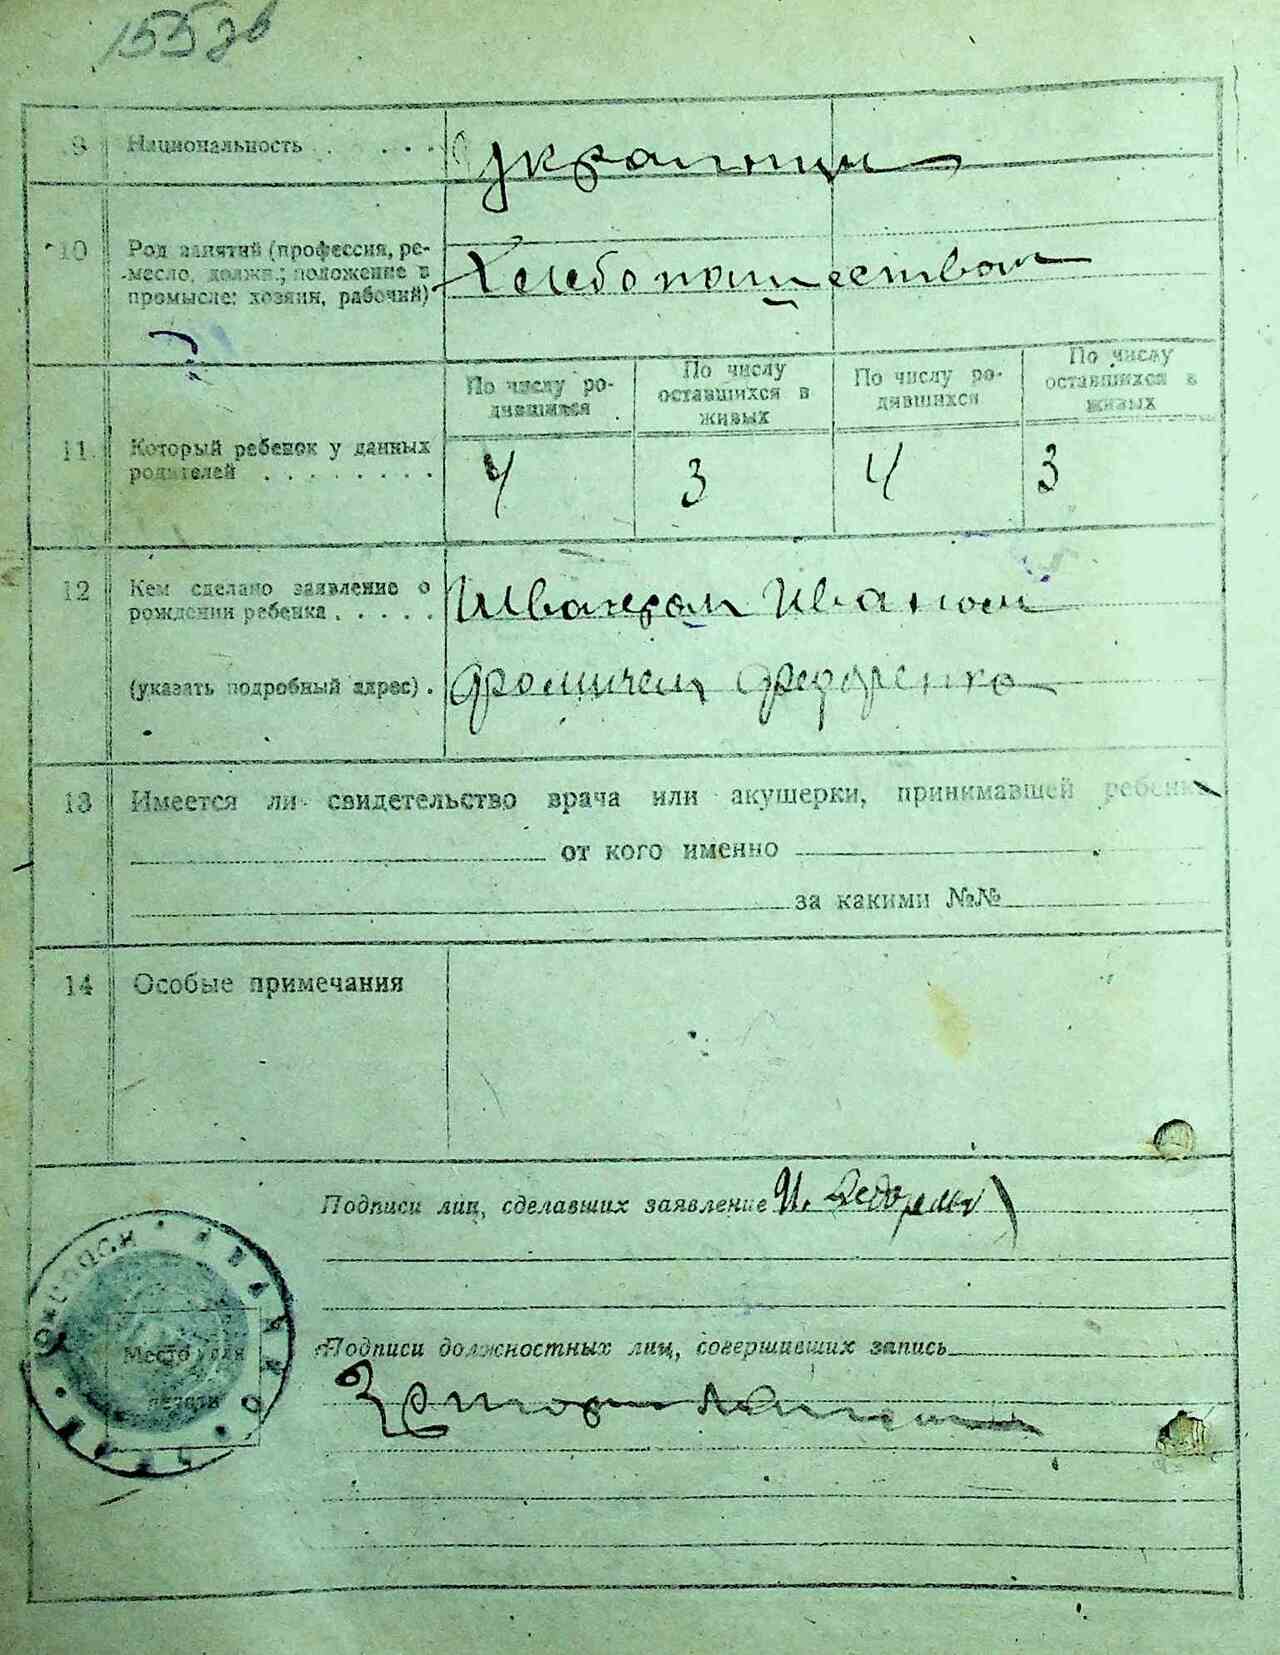 155 об
9 Национальность . . . . украинцы
10 Род занятий (профессия, ре-
месло, должн.; положение в
промысле: хозяин, рабочий)
Хлебопашеством
По числу ро-
дившихся
По числу
оставшихся в
живых
По числу ро-
дившихся
По числу
оставшихся в
живых
11. Который ребенок у данных
родителей . . . . . . . .
4 3 4 3
12 Кем сделано заявление о
рождении ребенка . . . . .
Иваном
(указать подробный адрес) .
Федоренко
13 Имеется ли свидетельство врача или акушерки, принимавшей ребенка
от кого именно
за какими №№
14 Особые примечания
Подписи лиц, сделавших заявление И. Федоренко
Место для
печати
Подписи должностных лиц, совершивших запись